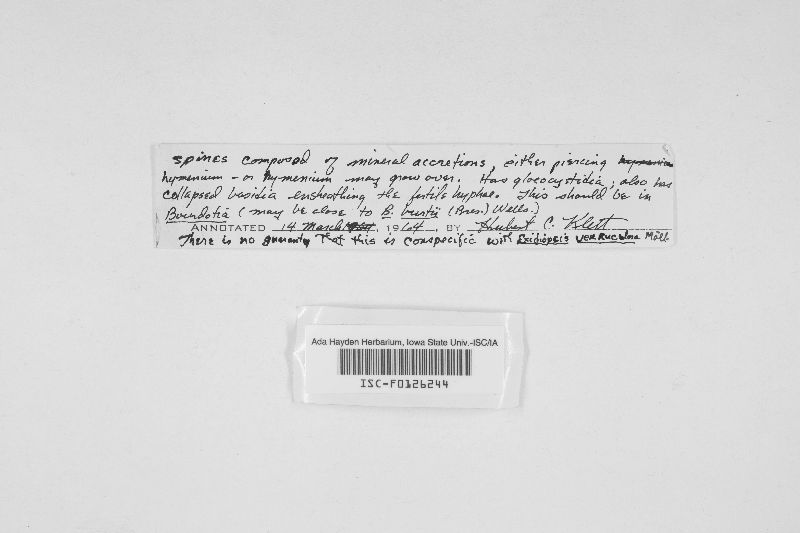 spines composed of mineral accretions, either piercing hymenium
hymenium - or hymenium may grow over. Has gloeocystidia; also has
collapsed basidia ensheathing the fertile hyphae. This should be in
Bourdotia (may be close to B. burtii (Bres.) Wells.)
ANNOTATED 14 March, 1964, BY Hubert C. Klett
There is no guaranty that this is conspecific with Exidiopsis verruculosa Möll.
Ada Hayden Herbarium, Iowa State Univ.-ISC/IA
ISC-F0126244